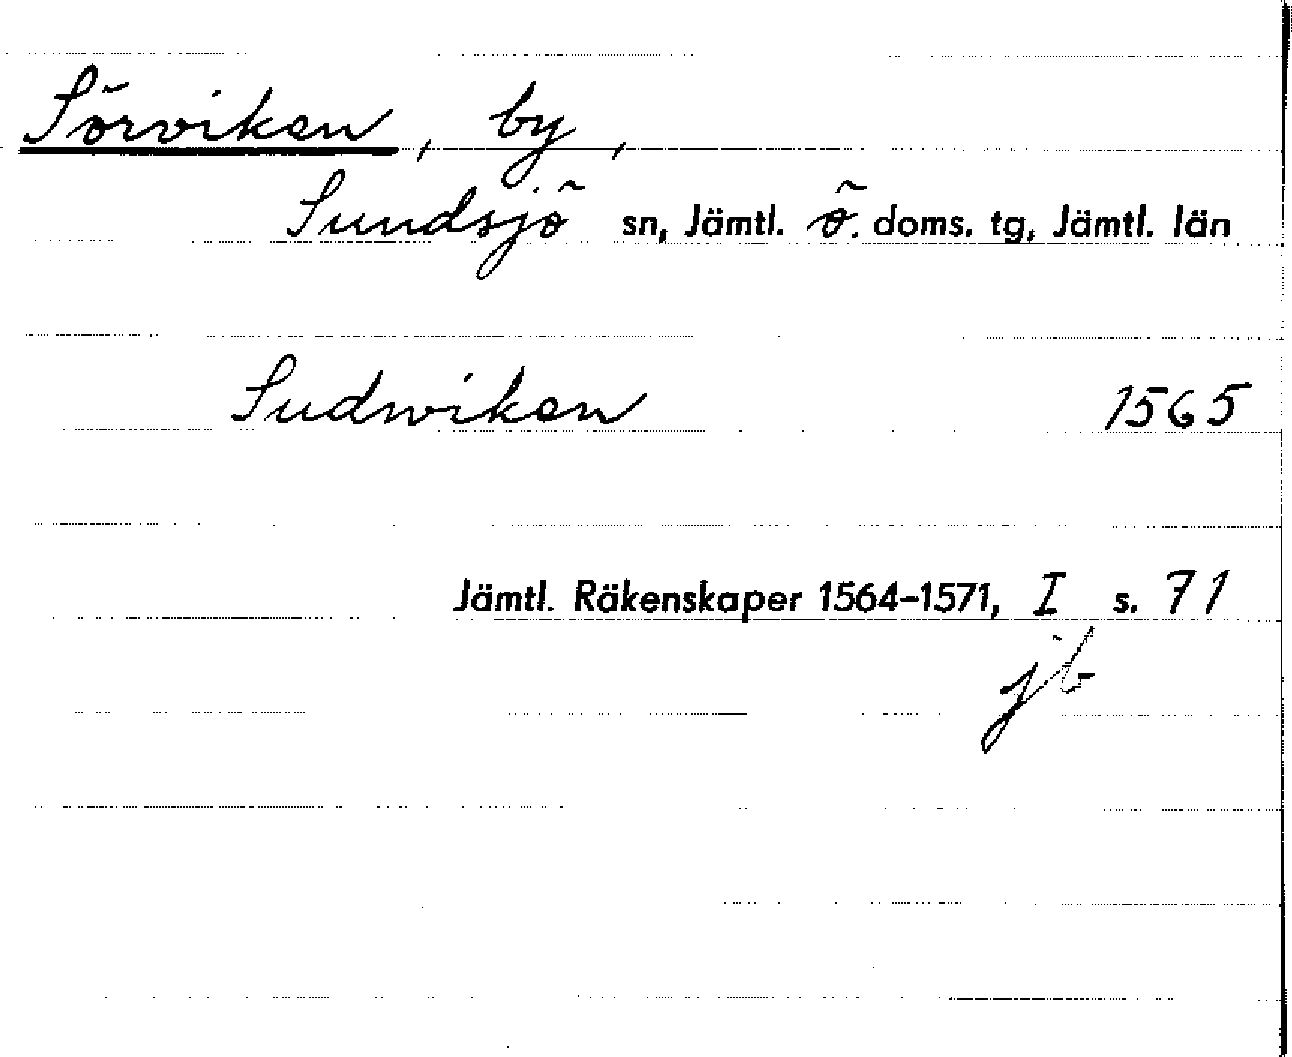 Sörviken, by,
Sundsjö sn, Jämtl. ö. doms. tg, Jämtl. län
Sudwiken 1565
Jämtl. Räkenskaper 1564-1571, I s. 71
jb